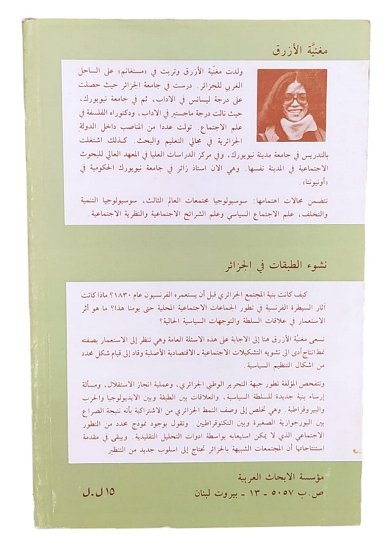 مغنيّة الأزرق
ولدت مغنيّة الأزرق وتربت في «مستغانم» على الساحل
الغربي للجزائر. درست في جامعة الجزائر حيث حصلت
على درجة ليسانس في الآداب، ثم في جامعة نيويورك،
حيث نالت درجة ماجستير في الآداب، ودكتوراه الفلسفة في
علم الاجتماع. تولت عددا من المناصب داخل الدولة
الجزائرية في مجالي التعليم والبحث. كذلك اشتغلت
بالتدريس في جامعة مدينة نيويورك، وفي مركز الدراسات العليا في المعهد العالي للبحوث
الاجتماعية في المدينة نفسها. وهي الآن استاذ زائر في جامعة نيويورك الحكومية في
«أونيونتا»
تتضمن مجالات اهتمامها: سوسيولوجيا مجتمعات العالم الثالث، سوسيولوجيا التنمية
والتخلف، علم الاجتماع السياسي وعلم الشرائح الاجتماعية والنظرية الاجتماعية
نشوء الطبقات في الجزائر
كيف كانت بنية المجتمع الجزائري قبل أن يستعمره الفرنسيون عام ١٨٣٠؟ ماذا كانت
آثار السيطرة الفرنسية في تطور الجماعات الاجتماعية المحلية حتى يومنا هذا؟ ما هو أثر
الاستعمار في علاقات السلطة والتوجهات السياسية الحالية؟
تسعى مغنيّة الأزرق هنا إلى الاجابة على هذه الاسئلة العامة وهي تنظر إلى الاستعمار بصفته
نمط انتاج أدى الى تشويه التشكيلات الاجتماعية ـ الاقتصادية الأصلية وقاد إلى قيام شكل محدد
من اشكال التنظيم السياسية
وتتفحص المؤلفة تطور جبهة التحرير الوطني الجزائري، وعملية انجاز الاستقلال، ومسألة
إرساء بنية جديدة للسلطة السياسية، والعلاقات بين الطبقة وبين الايديولوجيا والحزب
والبيروقراطية. وهي تخلص إلى وصف النمط الجزائري من الاشتراكية بأنه نتيجة الصراع
بين البورجوازية الصغيرة وبين التكنوقراطيين. وتقول بوجود نموذج محدد من التطور
الاجتماعي الذي لا يمكن استيعابه بواسطة ادوات التحليل التقليدية. ويبقى في مقدمة
استنتاجاتها أن المجتمعات الشبيهة بالجزائر تحتاج إلى اسلوب جديد من التنظير
مؤسسة الابحاث العربية
ص.ب ٥٠٥٧ - ١٣ - بيروت لبنان
١٥ ل.ل